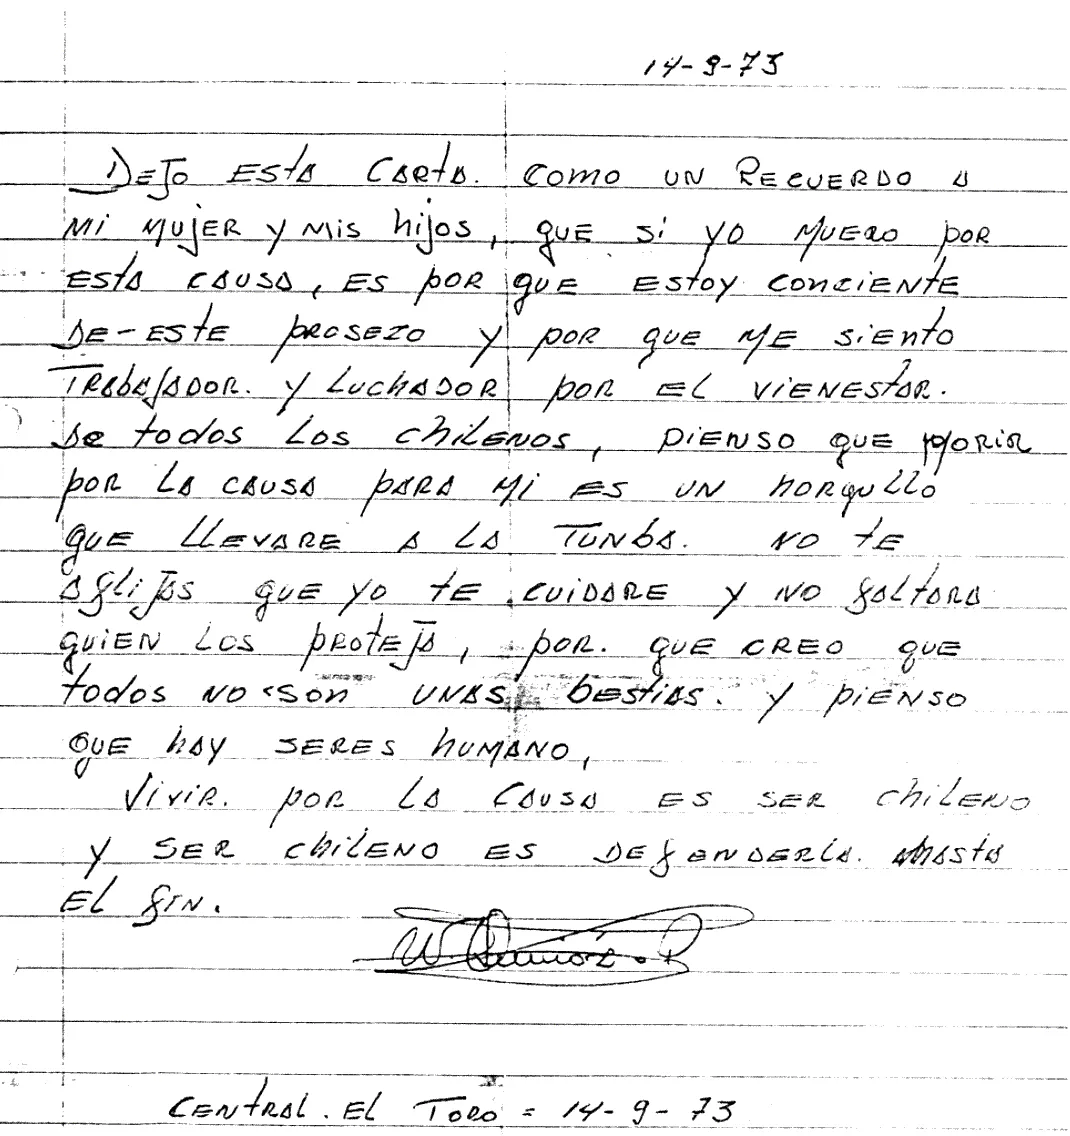 14-9-73
Dejo esta carta. como un Recuerdo a
mi mujer y mis hijos, que si yo muero por
esta causa, es por que estoy conciente
de-este prosezo y por que me siento
Trabajador. y Luchador por el vienestar.
de todos los chilenos, pienso que morir
por la causa para mi es un horqullo
que llevare a la Tunba. no te
aflijas que yo te cuidare y no faltara
quien los proteja, por. que creo que
todos no son unas bestias. y pienso
que hay seres humano,
Vivir. por la causa es ser chileno
y ser chileno es defenderla. hasta
el fin.
W. Muñoz. R
Central. El Toro = 14-9-73